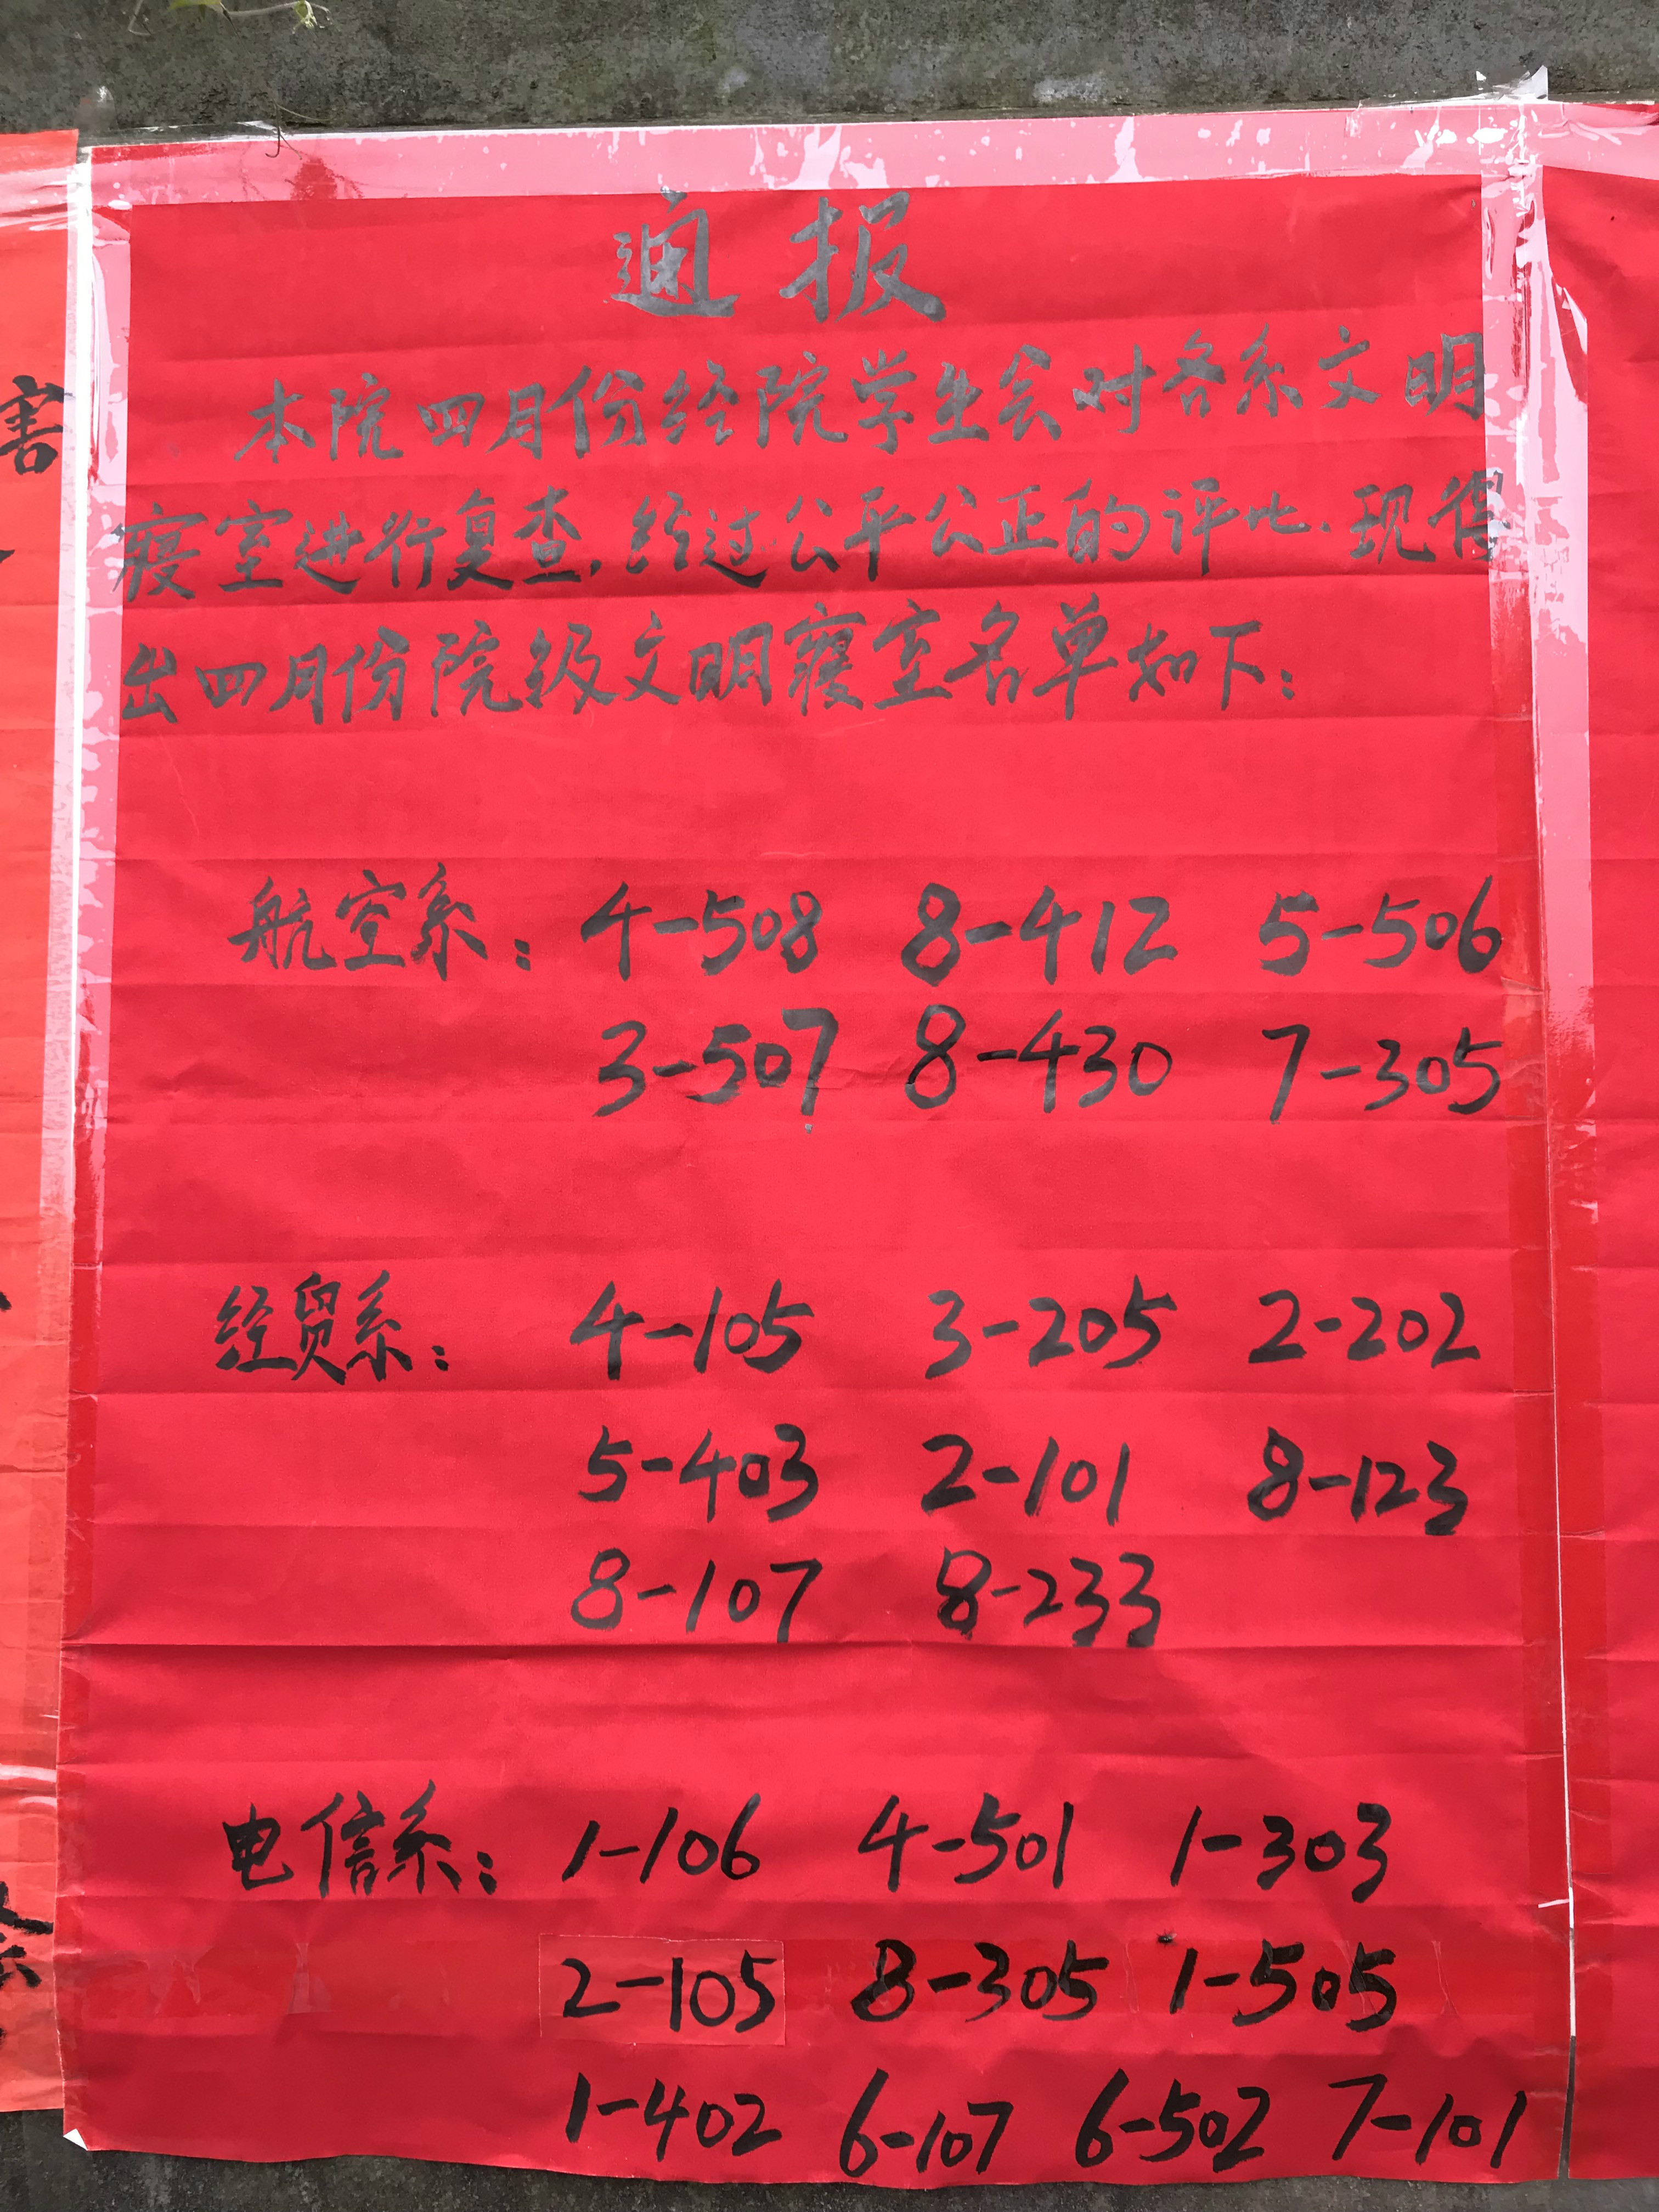 通报
本院四月份经院学生会对各系文明
寝室进行复查,经过公平公正的评比.现得
出四月份院级文明寝室名单如下:
航空系: 4-508 8-412 5-506
3-507 8-430 7-305
经贸系: 4-105 3-205 2-202
5-403 2-101 8-123
8-107 8-233
电信系: 1-106 4-501 1-303
2-105 8-305 1-505
1-402 6-107 6-502 7-101
害